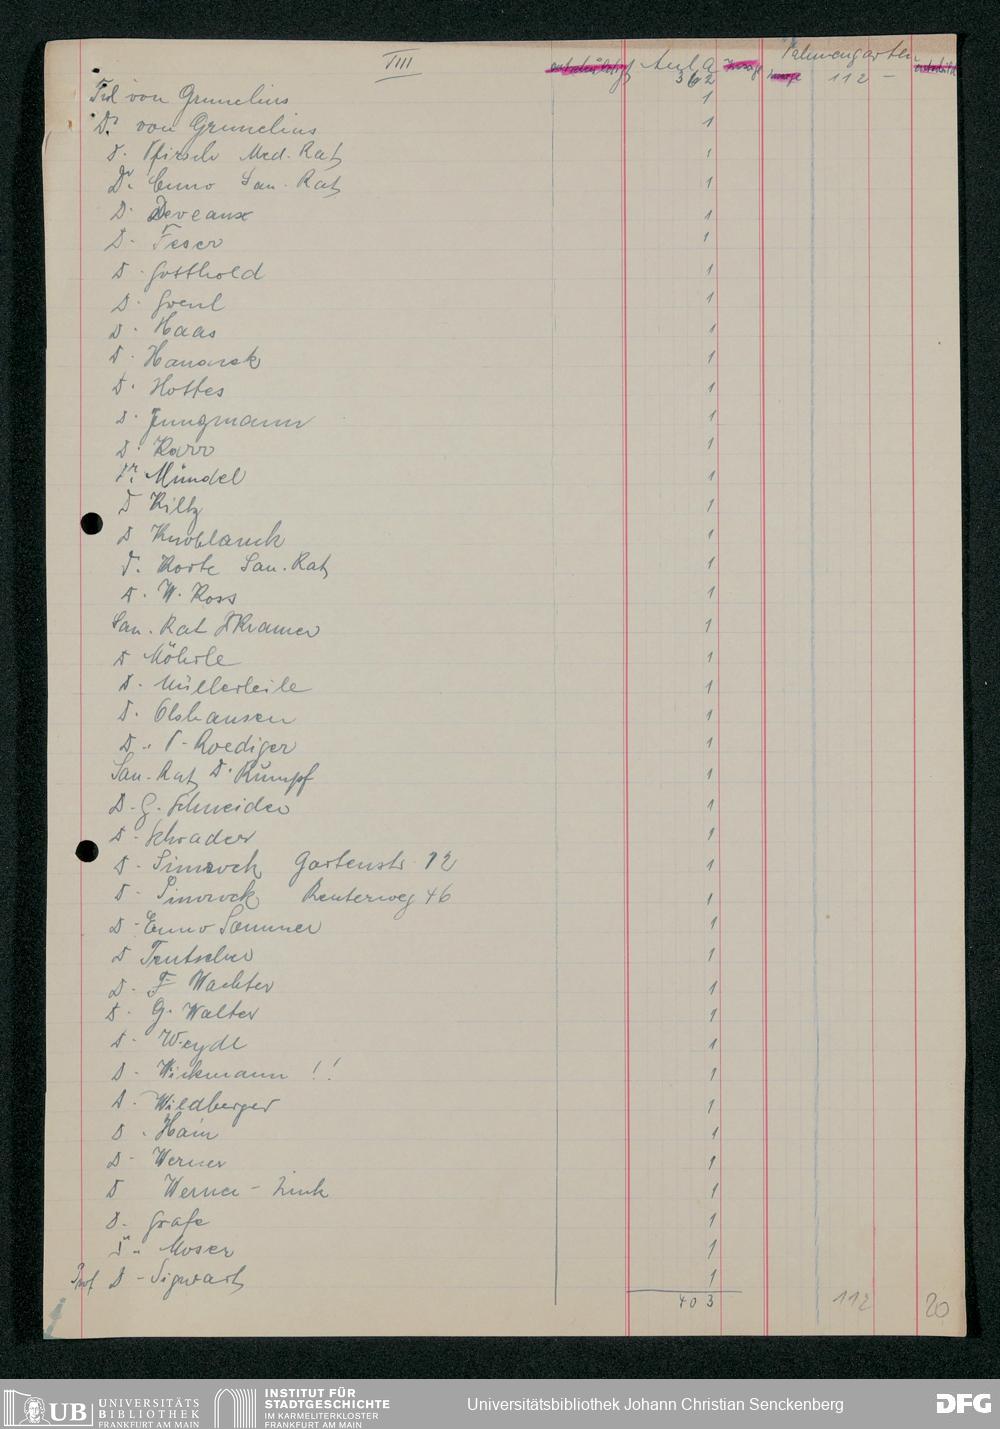 VIII
Aula
Palmengarten
362
112 -
Frl von Grunelius 1
Dr von Grunelius 1
D. Pfirsch Med. Rat 1
Dr. Cuno San. Rat 1
D. Deveaux 1
D. Feser 1
D. Gotthold 1
D. Greul 1
D. Haas 1
D. Hanauek 1
D. Hottes 1
D. Jungmann 1
D. Karr 1
Dr. Mündel 1
D Kiltz 1
D Knoblauch 1
D. Korte San. Rat 1
D. W. Koss 1
San. Rat D Kramer 1
D Möhrle 1
D. Müllerleile 1
D. Olshausen 1
D. P. Roediger 1
San. Rat D. Rumpf 1
D. G. Schneider 1
D. Schrader 1
D. Simrock Gartenstr 12 1
D. Simrock Reuterweg 46 1
D. Enno Sommer 1
D Teutscher 1
D. F Wachter 1
D. G. Walter 1
D. Weydl 1
D. Wiekmann !! 1
D. Wildberger 1
D. Hain 1
D. Werner 1
D Werner - Zink 1
D. Grafe 1
D. Moser 1
Prof D - Sigwart 1
403 112 20
UB UNIVERSITÄTS
BIBLIOTHEK
FRANKFURT AM MAIN
INSTITUT FÜR
STADTGESCHICHTE
IM KARMELITERKLOSTER
FRANKFURT AM MAIN
Universitätsbibliothek Johann Christian Senckenberg
DFG